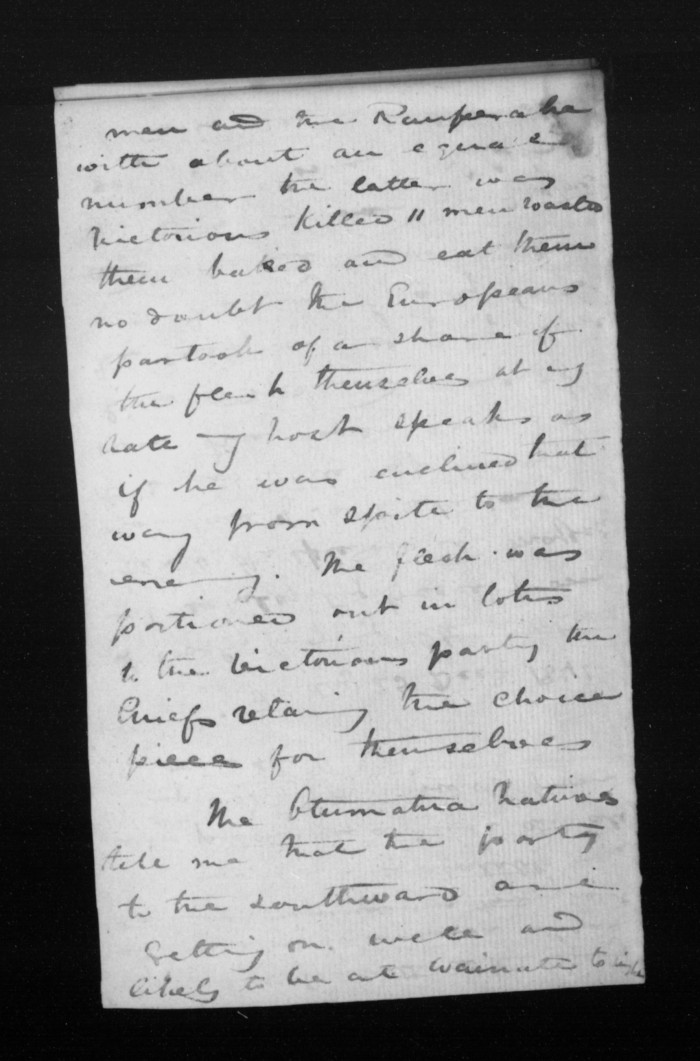 men and the Rauperahe
with about an equale
number the latter was
victorious killed 11 men roasted
them baked and eat them
no doubt the Europeans
partook of a share of
the flesh themselves at any
rate my host speaks as
if he was enclined that
way from spite to the
enemy. The flesh was
portioned out in lotts
to the victorious party the
Chiefs retaing the choice
piece for themselves
The Otumatua Natives
tele me that the party
to the southward are
getting on well and
likely to be at Wainute to